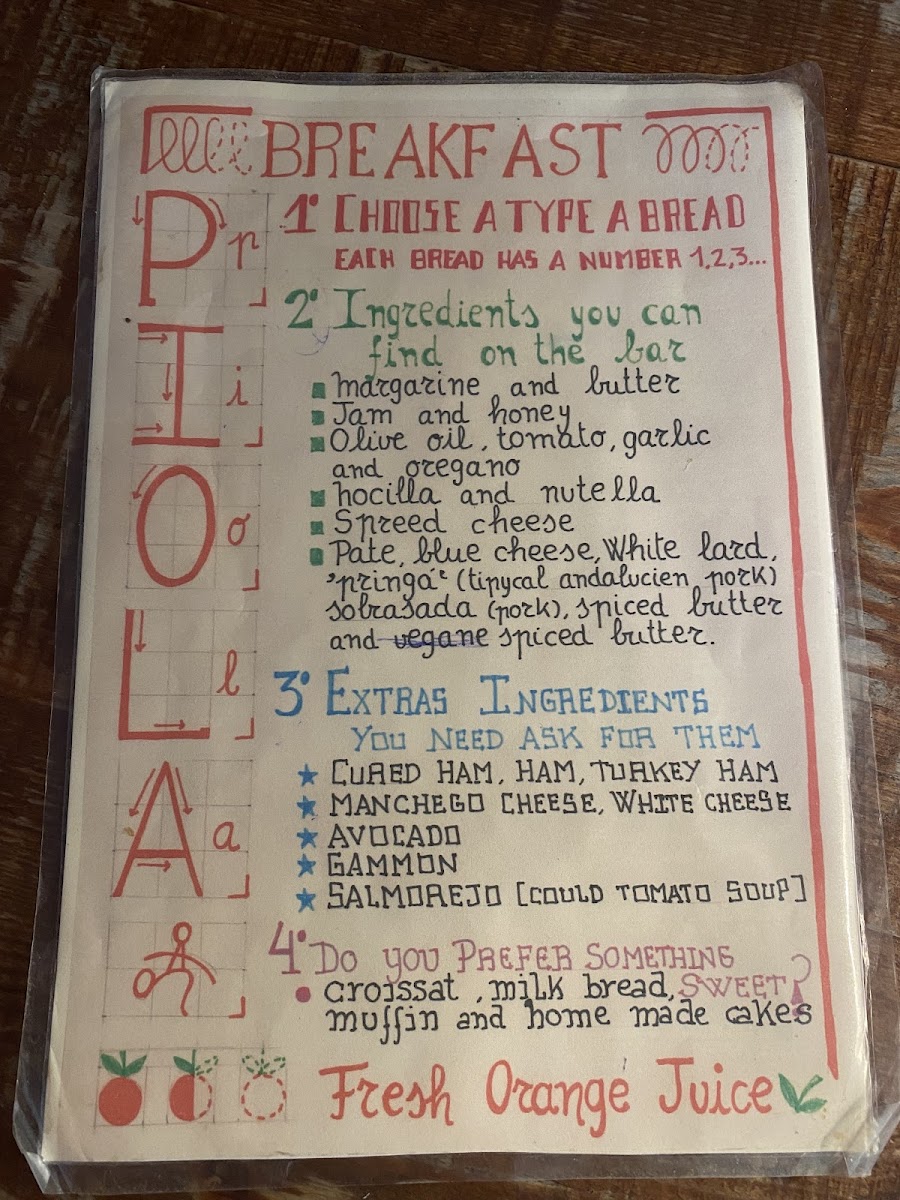 BREAKFAST
P p
I i
O o
L l
A a
1º CHOOSE A TYPE A BREAD
EACH BREAD HAS A NUMBER 1,2,3...
2º Ingredients you can
find on the bar
margarine and butter
Jam and honey
Olive oil, tomato, garlic
and oregano
hocilla and nutella
Spreed cheese
Pate, blue cheese, White lard,
"pringá" (tipycal andalucien pork)
sobrasada (pork), spiced butter
and vegane spiced butter.
3º EXTRAS INGREDIENTS
YOU NEED ASK FOR THEM
★ CURED HAM, HAM, TURKEY HAM
★ MANCHEGO CHEESE, WHITE CHEESE
★ AVOCADO
★ GAMMON
★ SALMOREJO [COULD TOMATO SOUP]
4º DO you PREFER SOMETHING
SWEET?
• croissat, milk bread,
muffin and home made cakes
Fresh Orange Juice